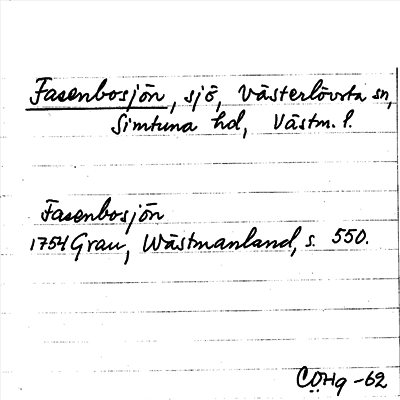 Fasenbosjön, sjö, Västerlövsta sn,
Simtuna hd, Västm. l.
Fasenbosjön
1754 Grau, Wästmanland, s. 550.
CÖHg -62